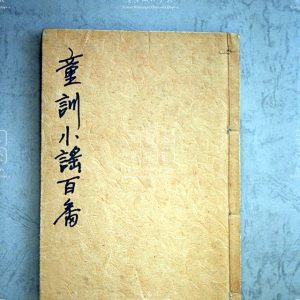 童訓小謠百番